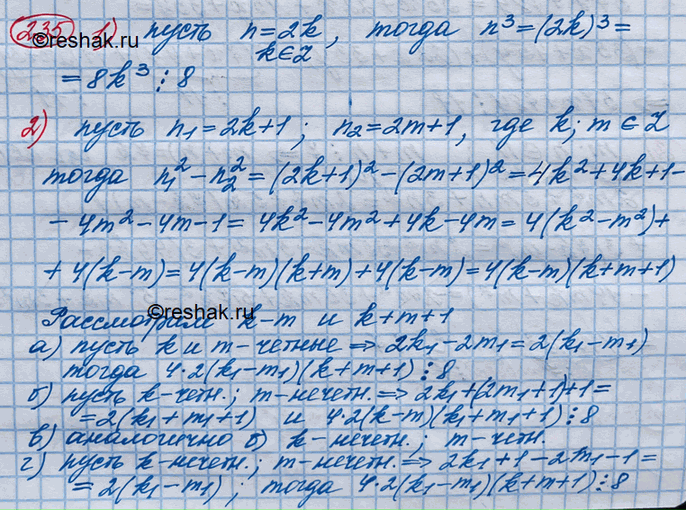 235 1) пусть n=2k, k∈Z, тогда n³=(2k)³=
©reshak.ru
=8k³⋮8
2) пусть n₁=2k+1; n₂=2m+1, где k; m∈Z
тогда n₁²-n₂²=(2k+1)²-(2m+1)²=4k²+4k+1-
-4m²-4m-1=4k²-4m²+4k-4m=4(k²-m²)+
+4(k-m)=4(k-m)(k+m)+4(k-m)=4(k-m)(k+m+1)
©reshak.ru
Рассмотрим k-m и k+m+1
а) пусть k и m-четные ⇒ 2k₁-2m₁=2(k₁-m₁)
тогда 4·2(k₁-m₁)(k+m+1)⋮8
б) пусть k-четн.; m-нечетн.⇒2k₁+(2m₁+1)+1=
=2(k₁+m₁+1) и 4·2(k-m)(k₁+m₁+1)⋮8
в) аналогично б) k-нечетн.; m-четн.
г) пусть k-нечетн.; m-нечетн.⇒2k₁+1-2m₁-1=
=2(k₁-m₁); тогда 4·2(k₁-m₁)(k+m+1)⋮8